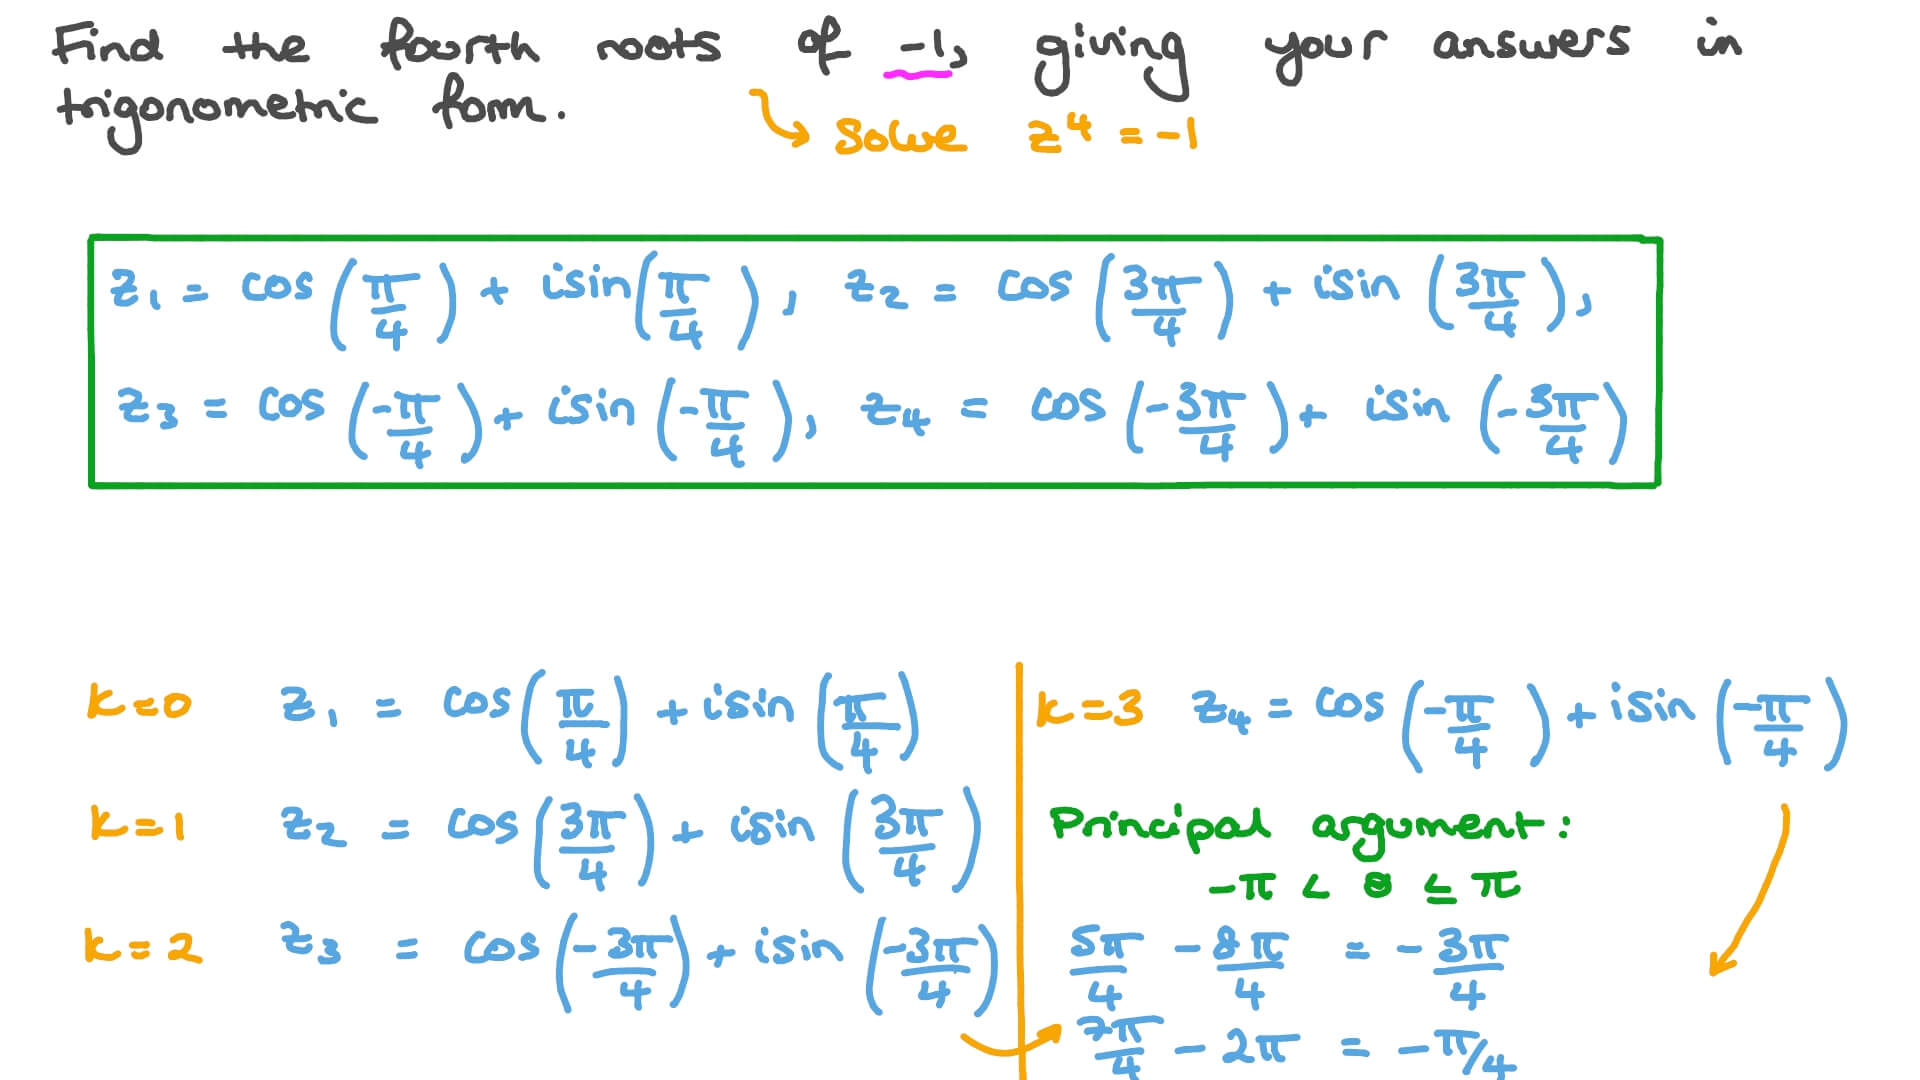 Find the fourth roots of -1, giving your answers in
trigonometric form.
Solve z⁴ = -1
z₁ = cos(π/4) + isin(π/4), z₂ = cos(3π/4) + isin(3π/4),
z₃ = cos(-π/4) + isin(-π/4), z₄ = cos(-3π/4) + isin(-3π/4)
k=0 z₁ = cos(π/4) + isin(π/4)
k=1 z₂ = cos(3π/4) + isin(3π/4)
k=2 z₃ = cos(-3π/4) + isin(-3π/4)
k=3 z₄ = cos(-π/4) + isin(-π/4)
Principal argument:
-π < θ ≤ π
5π/4 - 8π/4 = -3π/4
7π/4 - 2π = -π/4